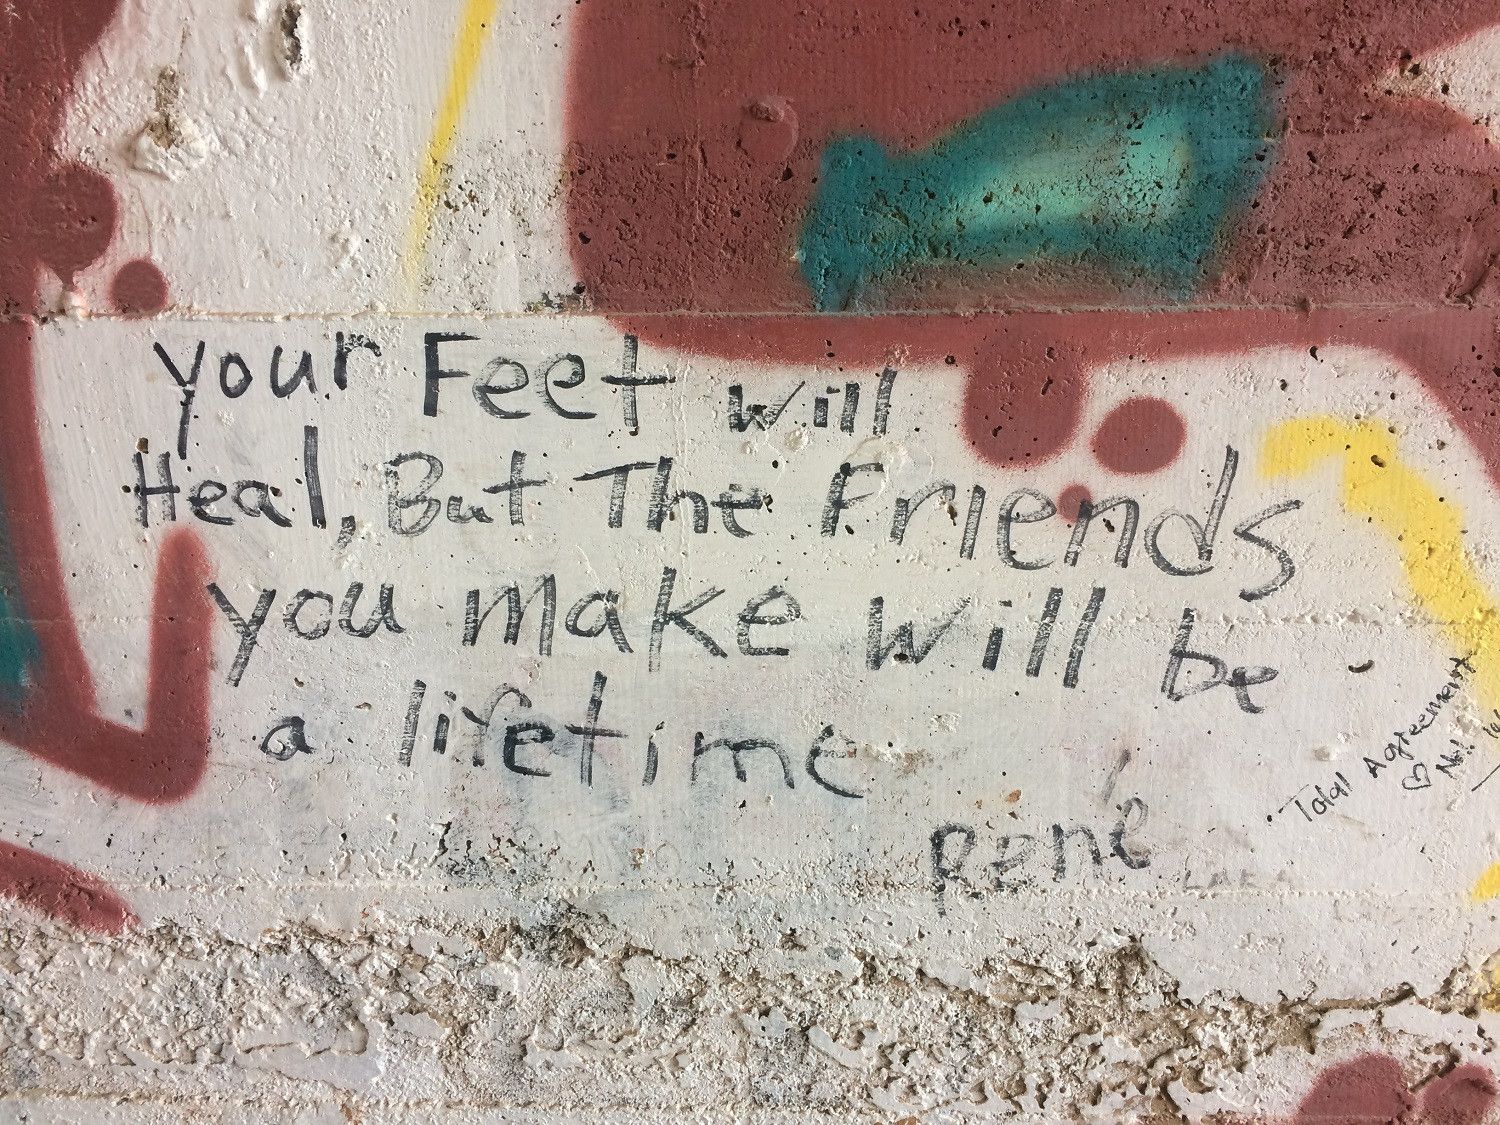 your Feet will
Heal, But The Friends
you make will be
a lifetime
René
Total Agreement